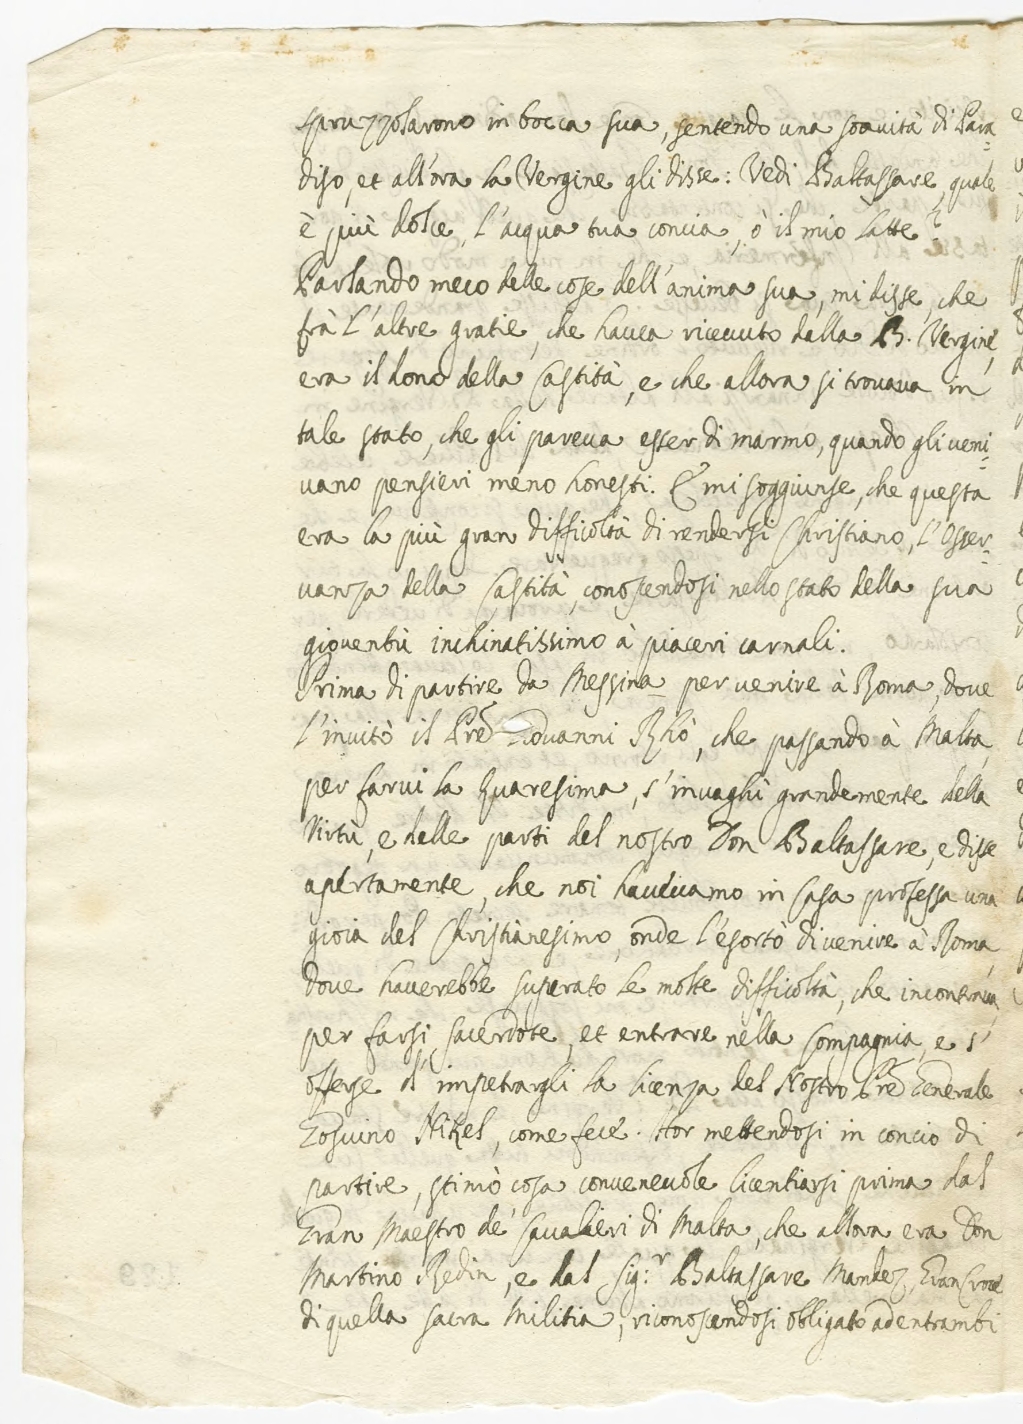 spruzzolarono in bocca sua, sentendo una soavità di Para=
diso, et all'ora la Vergine gli disse: Vedi Baltassare, quale
è più dolce, l'acqua tua concia, ò il mio latte?
Parlando meco delle cose dell'anima sua, mi disse, che
frà l'altre gratie, che hauea riceuuto dalla B. Vergine,
era il dono della Castità, e che allora si trouaua in
tale stato, che gli pareua esser di marmo, quando gli veni=
uano pensieri meno honesti. E mi soggiunse, che questa
era la più gran difficoltà di rendersi Christiano, l'osser=
uanza della Castità, conoscendosi nello stato della sua
giouentù inchinatissimo à piaceri carnali.
Prima di partire da Messina per venire à Roma, doue
l'inuitò il Pre Giouanni Rhò, che passando à Malta,
per farui la Quaresima, s'inuaghì grandemente della
Virtù, e delle parti del nostro Don Baltassare, e disse
apertamente, che noi haueuamo in Casa professa una
gioia del Christianesimo, onde l'esortò di venire à Roma,
doue hauerebbe superato le molte difficoltà, che incontraua,
per farsi sacerdote, et entrare nella Compagnia, e s'
offerse d'impetrargli la licenza del Nostro Pre Generale
Gosuino Nikel, come fece. Hor mettendosi in concio di
partire, stimò cosa conueneuole licentiarsi prima dal
Gran Maestro de' Caualieri di Malta, che allora era Don
Martino Redin, e dal Sig.r Baltassare Mandez, Gran Croce
di quella sacra Militia, riconoscendosi obligato ad entrambi